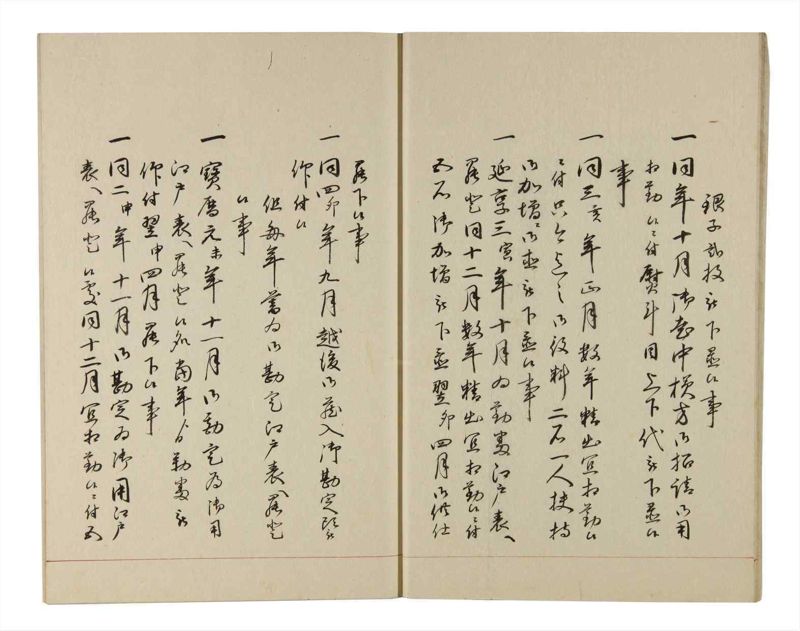 銀子弐枚被下置候事
一同年十月御在中検方御拓請御用
相勤候ニ付熨斗目上下代被下置候
事
一同三亥年正月数年精出宜相勤候
ニ付只今迄之御役料二石一人扶持
御加増ニ御直被下置候事
一延享三寅年十月為勤変江戸表へ
罷登同十二月数年精出宜相勤候ニ付
五石御加増被下置翌卯四月御供仕
罷下候事
一同四卯年九月越後御蔵入御勘定頭被
仰付候
但毎年暮為御勘定江戸表へ罷登
候事
一寳暦元未年十一月御勘定為御用
江戸表へ罷登候処南年ゟ勤変被
仰付翌申四月罷下候事
一同二申年十一月御勘定為御用江戸
表へ罷登候処同十二月宜相勤候ニ付五